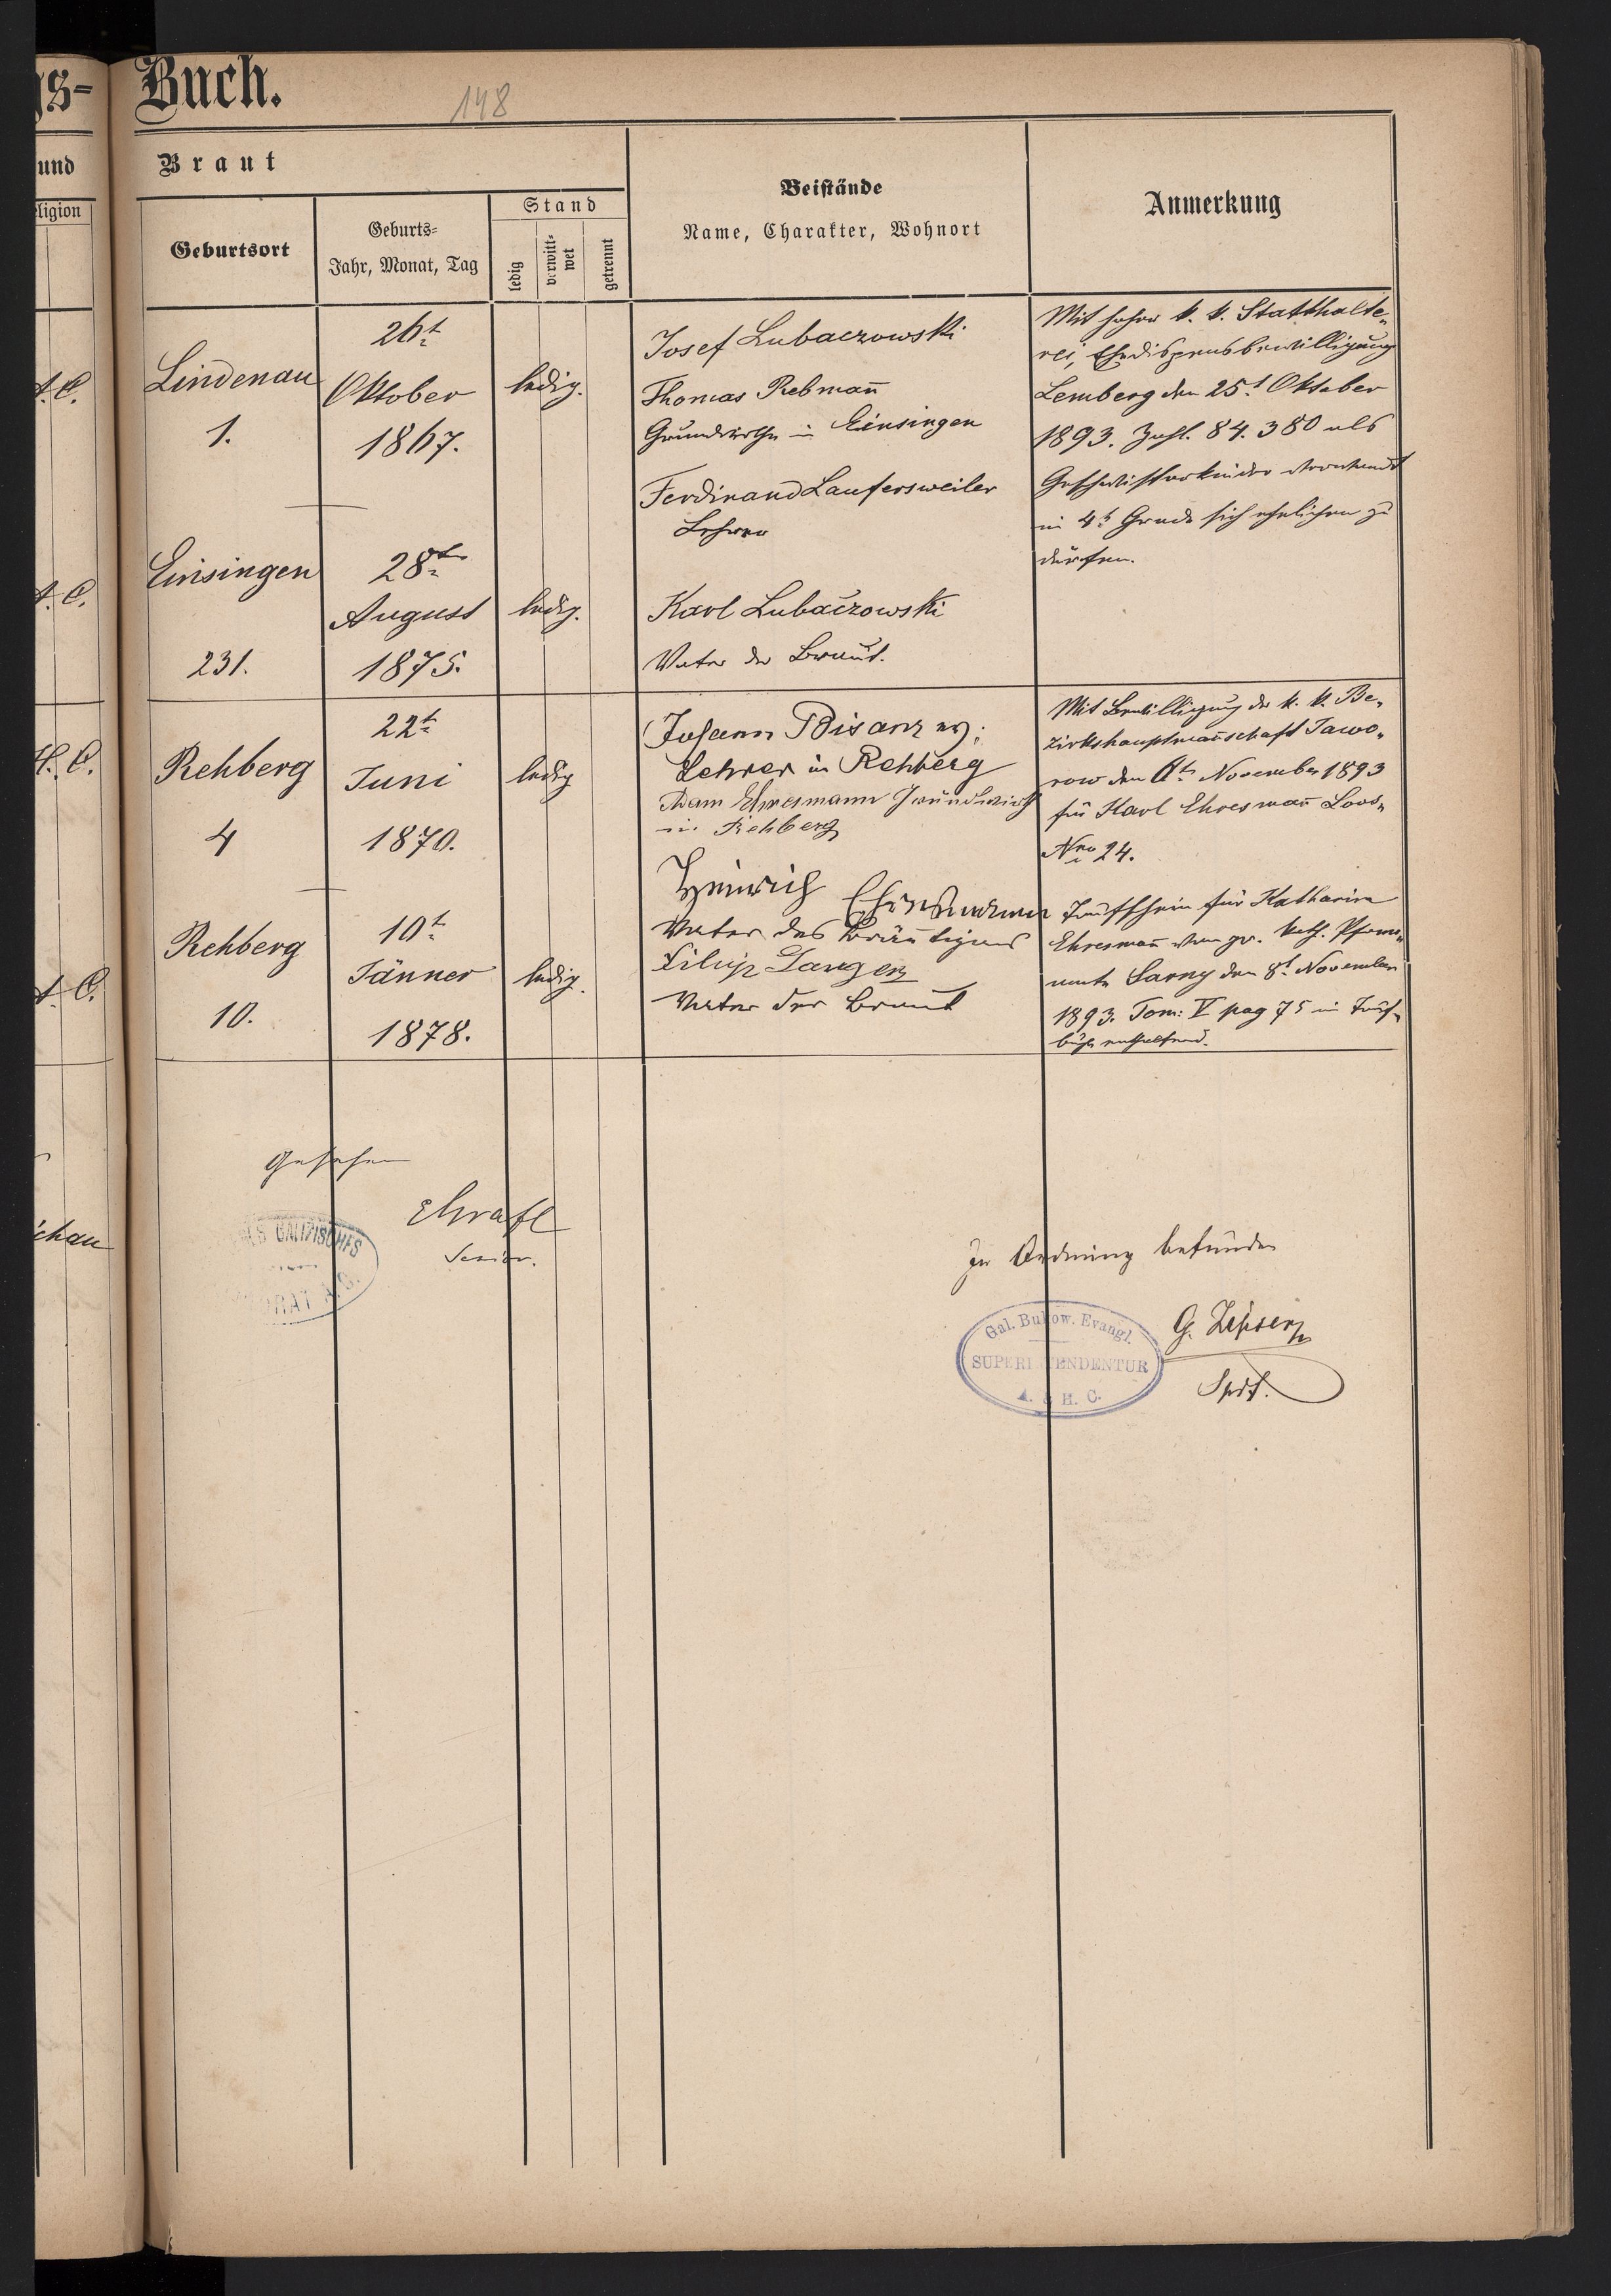 gs-
Buch.
148
und
Braut
eligion
Geburtsort
Geburts-
Jahr, Monat, Tag
Stand
ledig
verwitt-
wet
getrennt
Beistände
Name, Charakter, Wohnort
Anmerkung
A. C.
Lindenau
1.
26t
Oktober
1867.
ledig.
Josef Lubaczowski
Thomas Rebman̄
Grundwirthe in Einsingen
Ferdinand Laufersweiler
Lehrer
Mit hoher k. k. Statthalte-
rei, Ehedispensbewilligung
Lemberg den 25t Oktober
1893. Zahl. 84.380 als
Geschwisterkinder verwandt
im 4t Grade sich ehelichen zu
dürfen.
A. C.
Einsingen
231.
28t
August
1875.
ledig.
Karl Lubaczowski
Vater der Braut.
H. C.
Rehberg
4
22t
Juni
1870.
ledig
Johann Bisanz
Lehrer in Rehberg
Adam Ehresmann Grundwirth
in Rehberg
Mit Bewilligung der k. k. Be-
zirkshauptman̄schaft Jawo-
row den November 1893
für Karl Ehresman̄ Loos-
Nro 24.
A. C.
Rehberg
10.
10t
Jänner
1878.
ledig.
Heinrich Ehresmann
Vater des Bräutigams
Filip Langer
Vater der Braut
Taufschein für Katharina
Ehresman̄ vom gr. kath. Pfarr-
amte Sarny den 8t November
1893. Tom: V pag 75 im Tauf-
buch enthaltend.
Gesehen
Senior.
GALIZISCHES
chau
In Ordnung befunden
Gal. Bukow. Evangl.
SUPERINTENDENTUR
A. & H. C.
G. Zipser
Spdt.